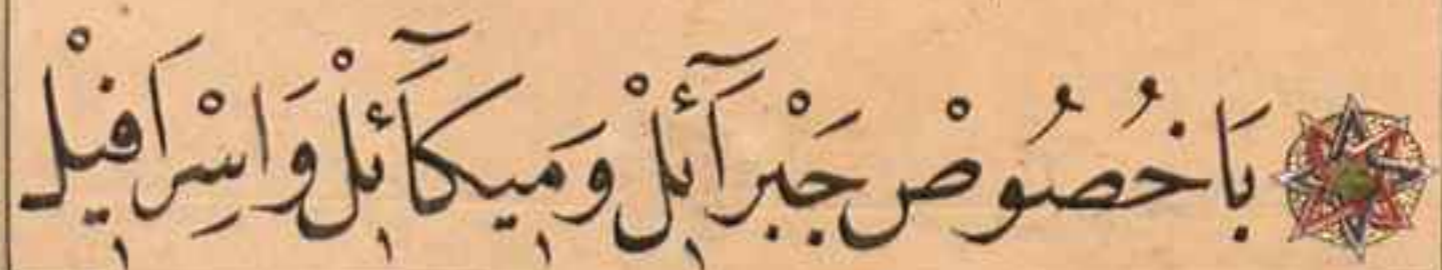 بَاخُصُوصْ جَبْرَآئِلْ وَمَيكَآئِلْ وَاسِْرَافيِلْ